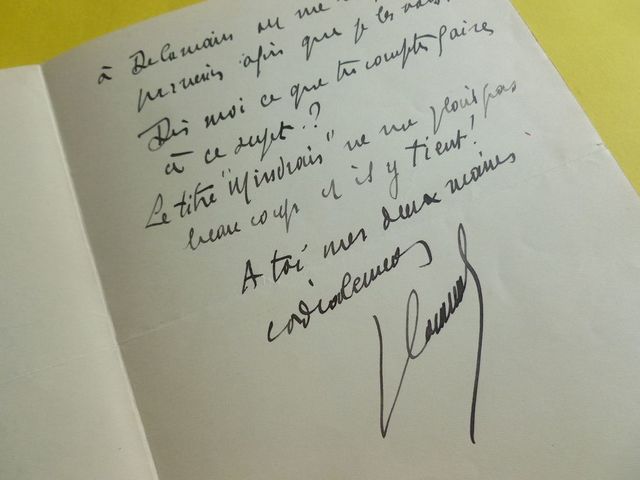 à Delamain ou me
premiers afin que je les
Dis moi ce que tu comptes faire
à ce sujet ?
Le titre " " ne me plait pas
beaucoup et il y tient !
A toi mes deux mains
cordialement